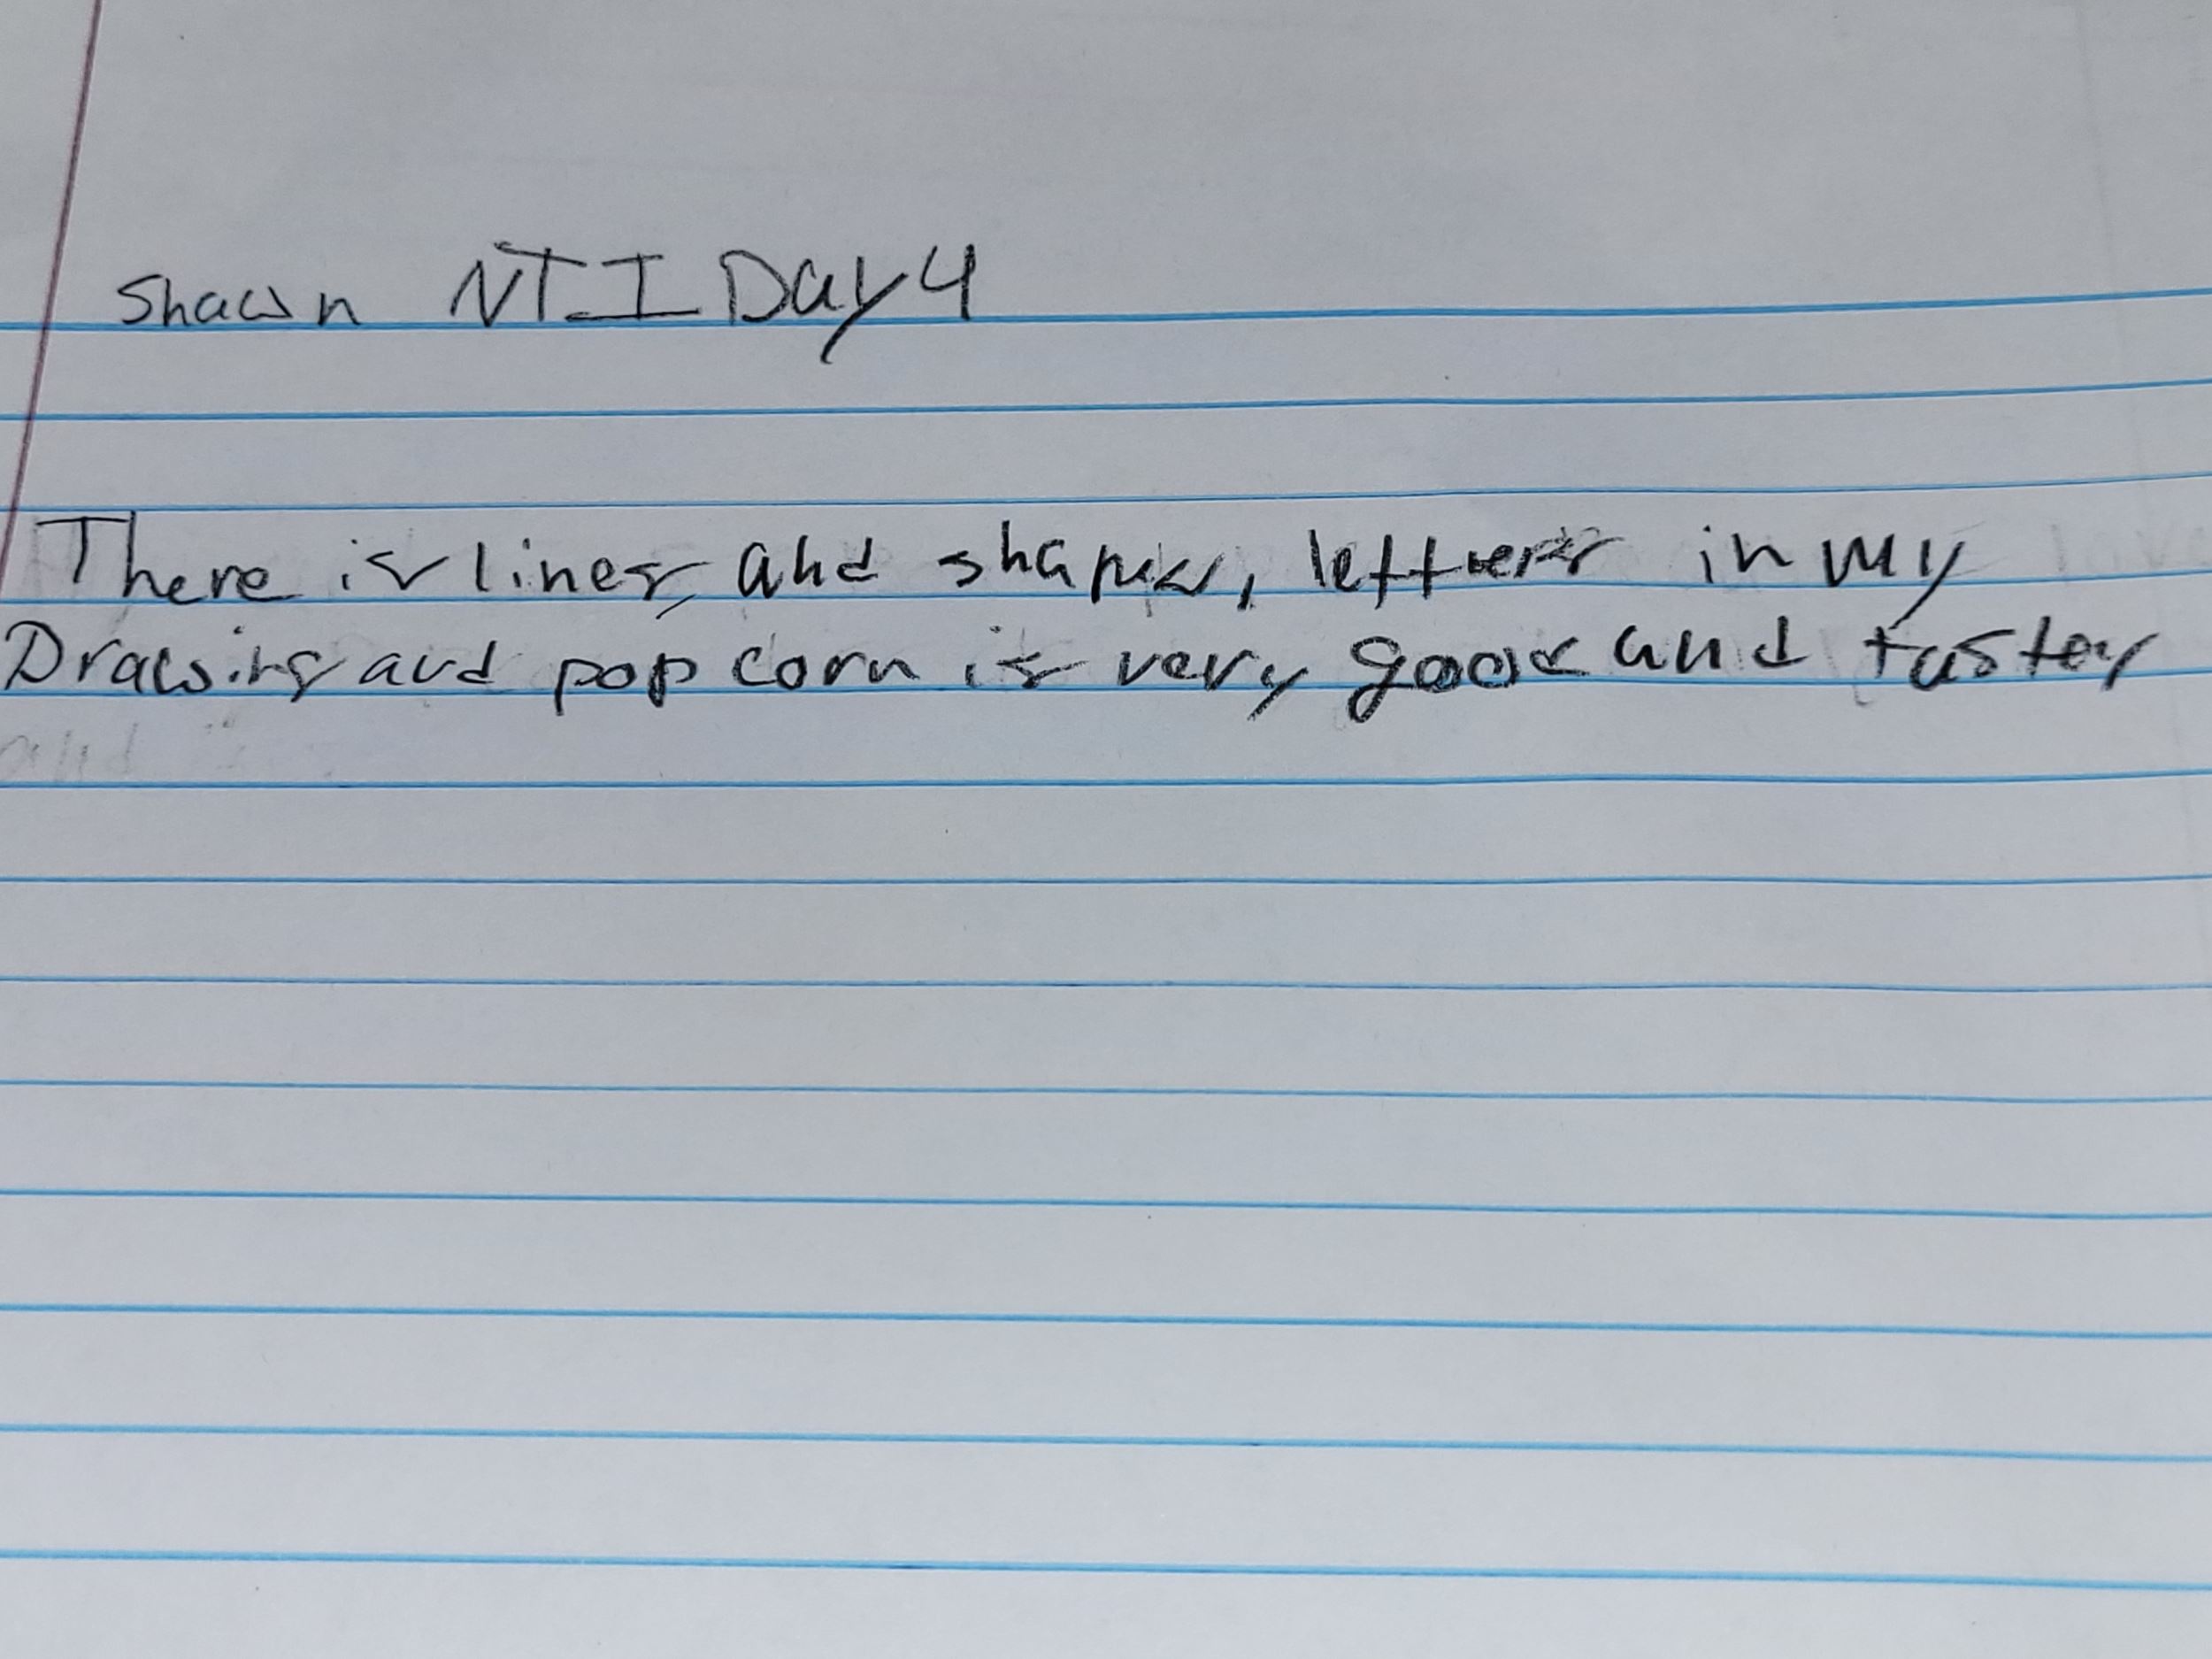 Shawn NTI Day 4
There is lines and shapes, letters in my
Drawing and pop corn is very good and tastey